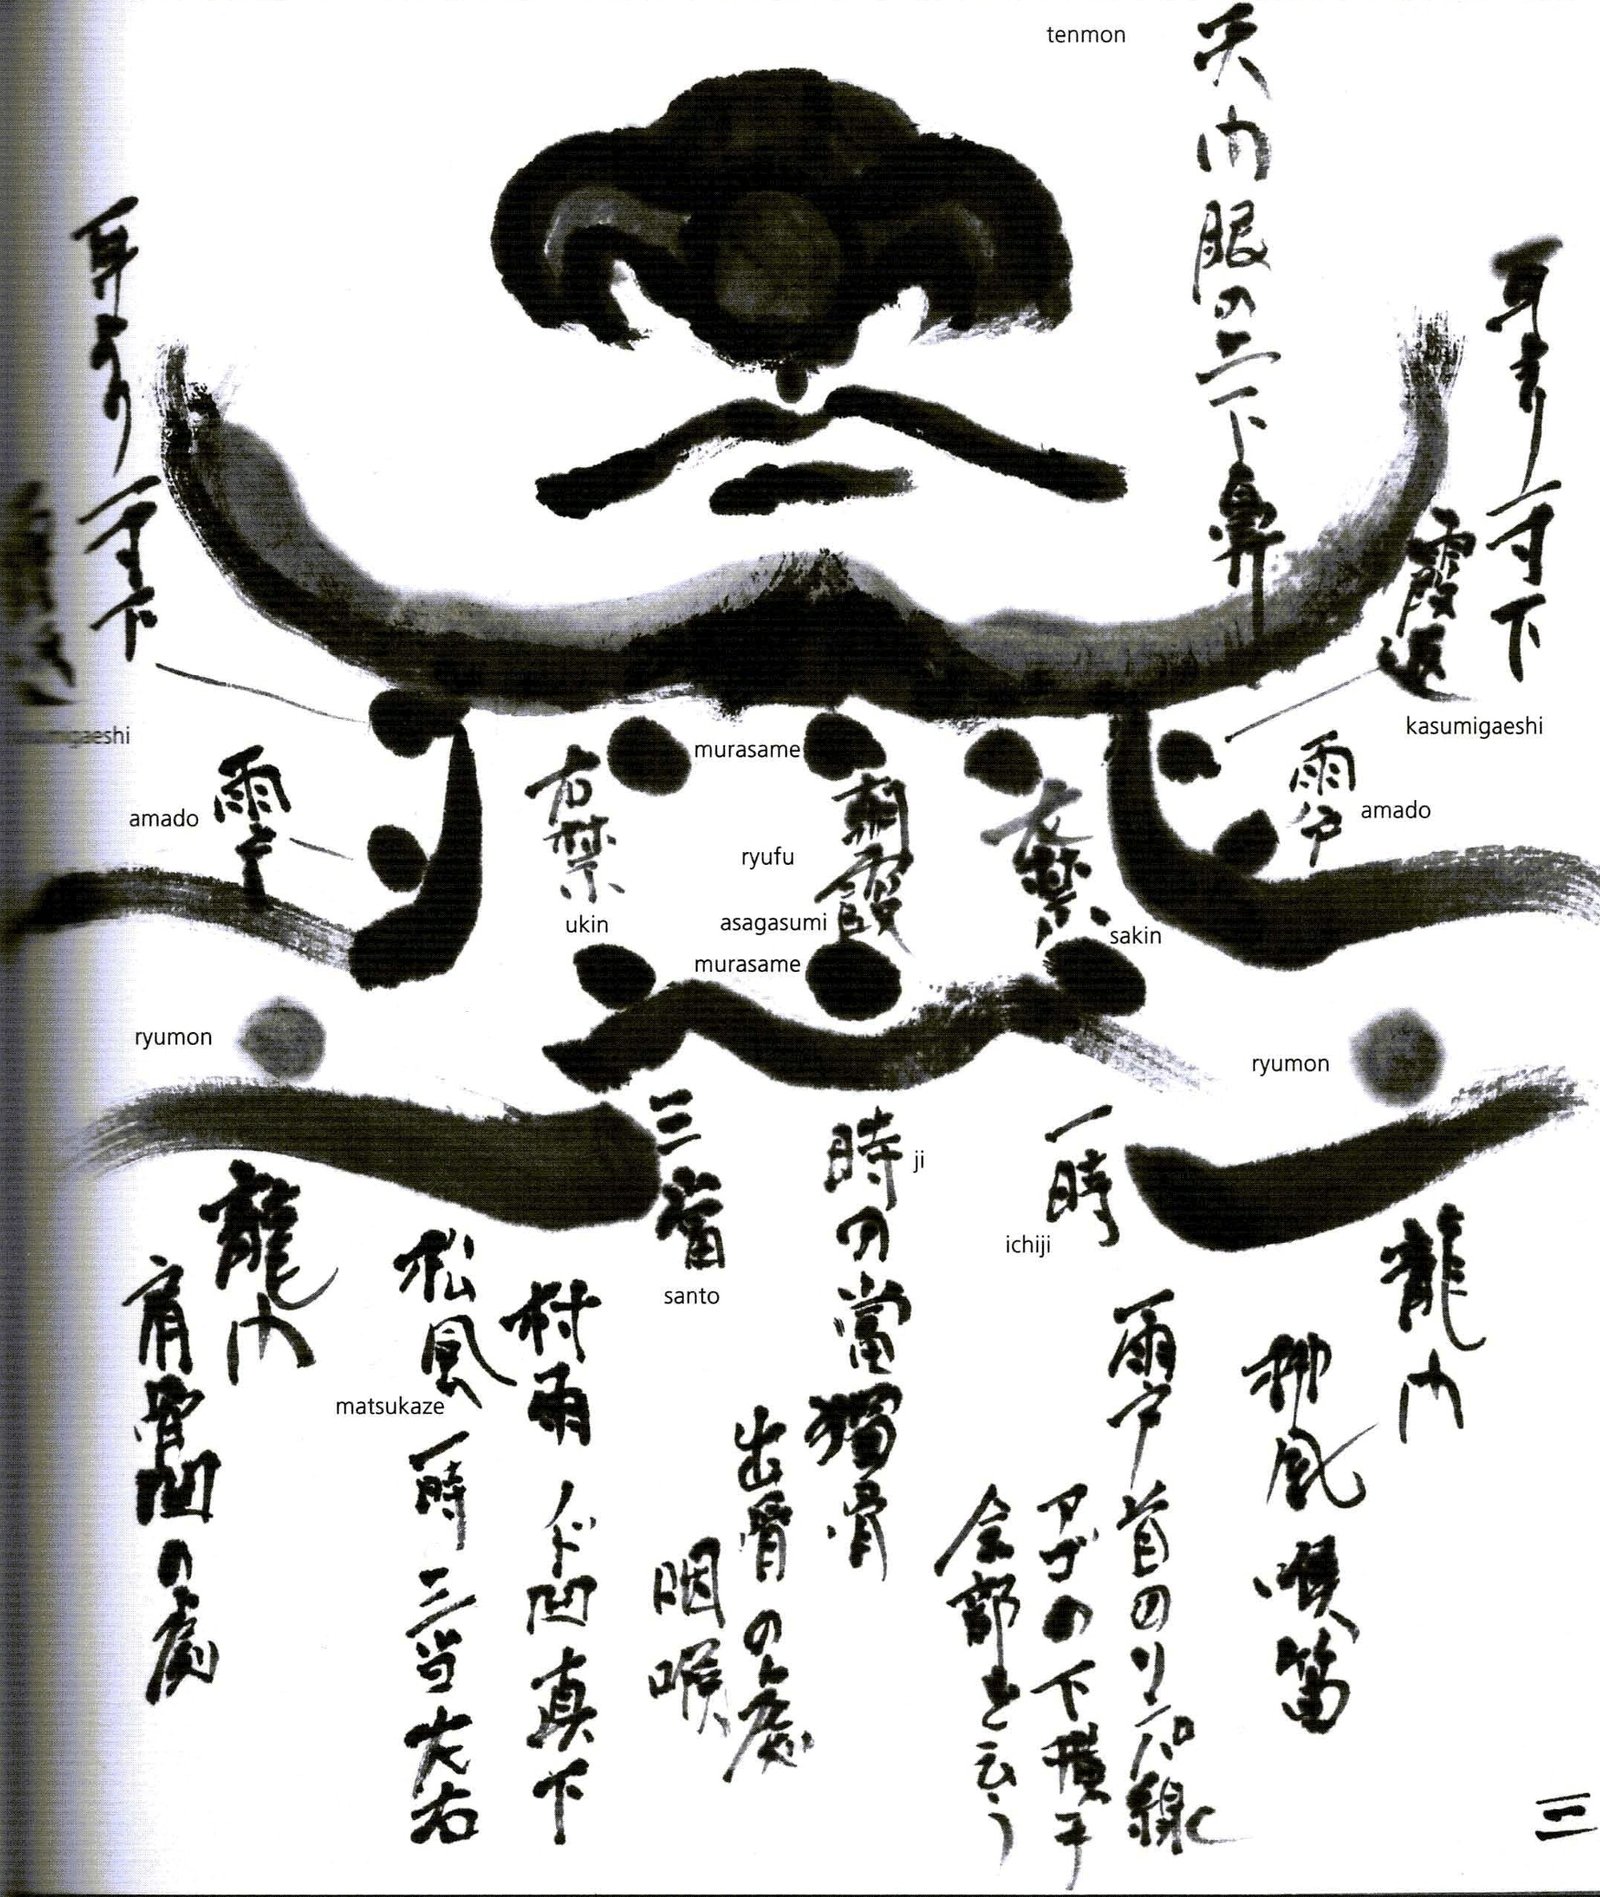 tenmon
天门眼の二下鼻
耳より一寸下
霞返
kasumigaeshi
耳より一寸下
雨戸
amado
雨戸
amado
murasame
朝霞
ryufu
asagasumi
murasame
右禁
ukin
左禁
sakin
ryumon
ryumon
龍门
柳風 喉笛
一時
ichiji
雨戸 首のリンパ線
アゴの下横手
全部を云う
時の當 獨骨
ji
出骨の處
咽喉
三當
santo
村雨 ノド間真下
松風
matsukaze
一時 三当 左右
龍门
肩骨間の處
三